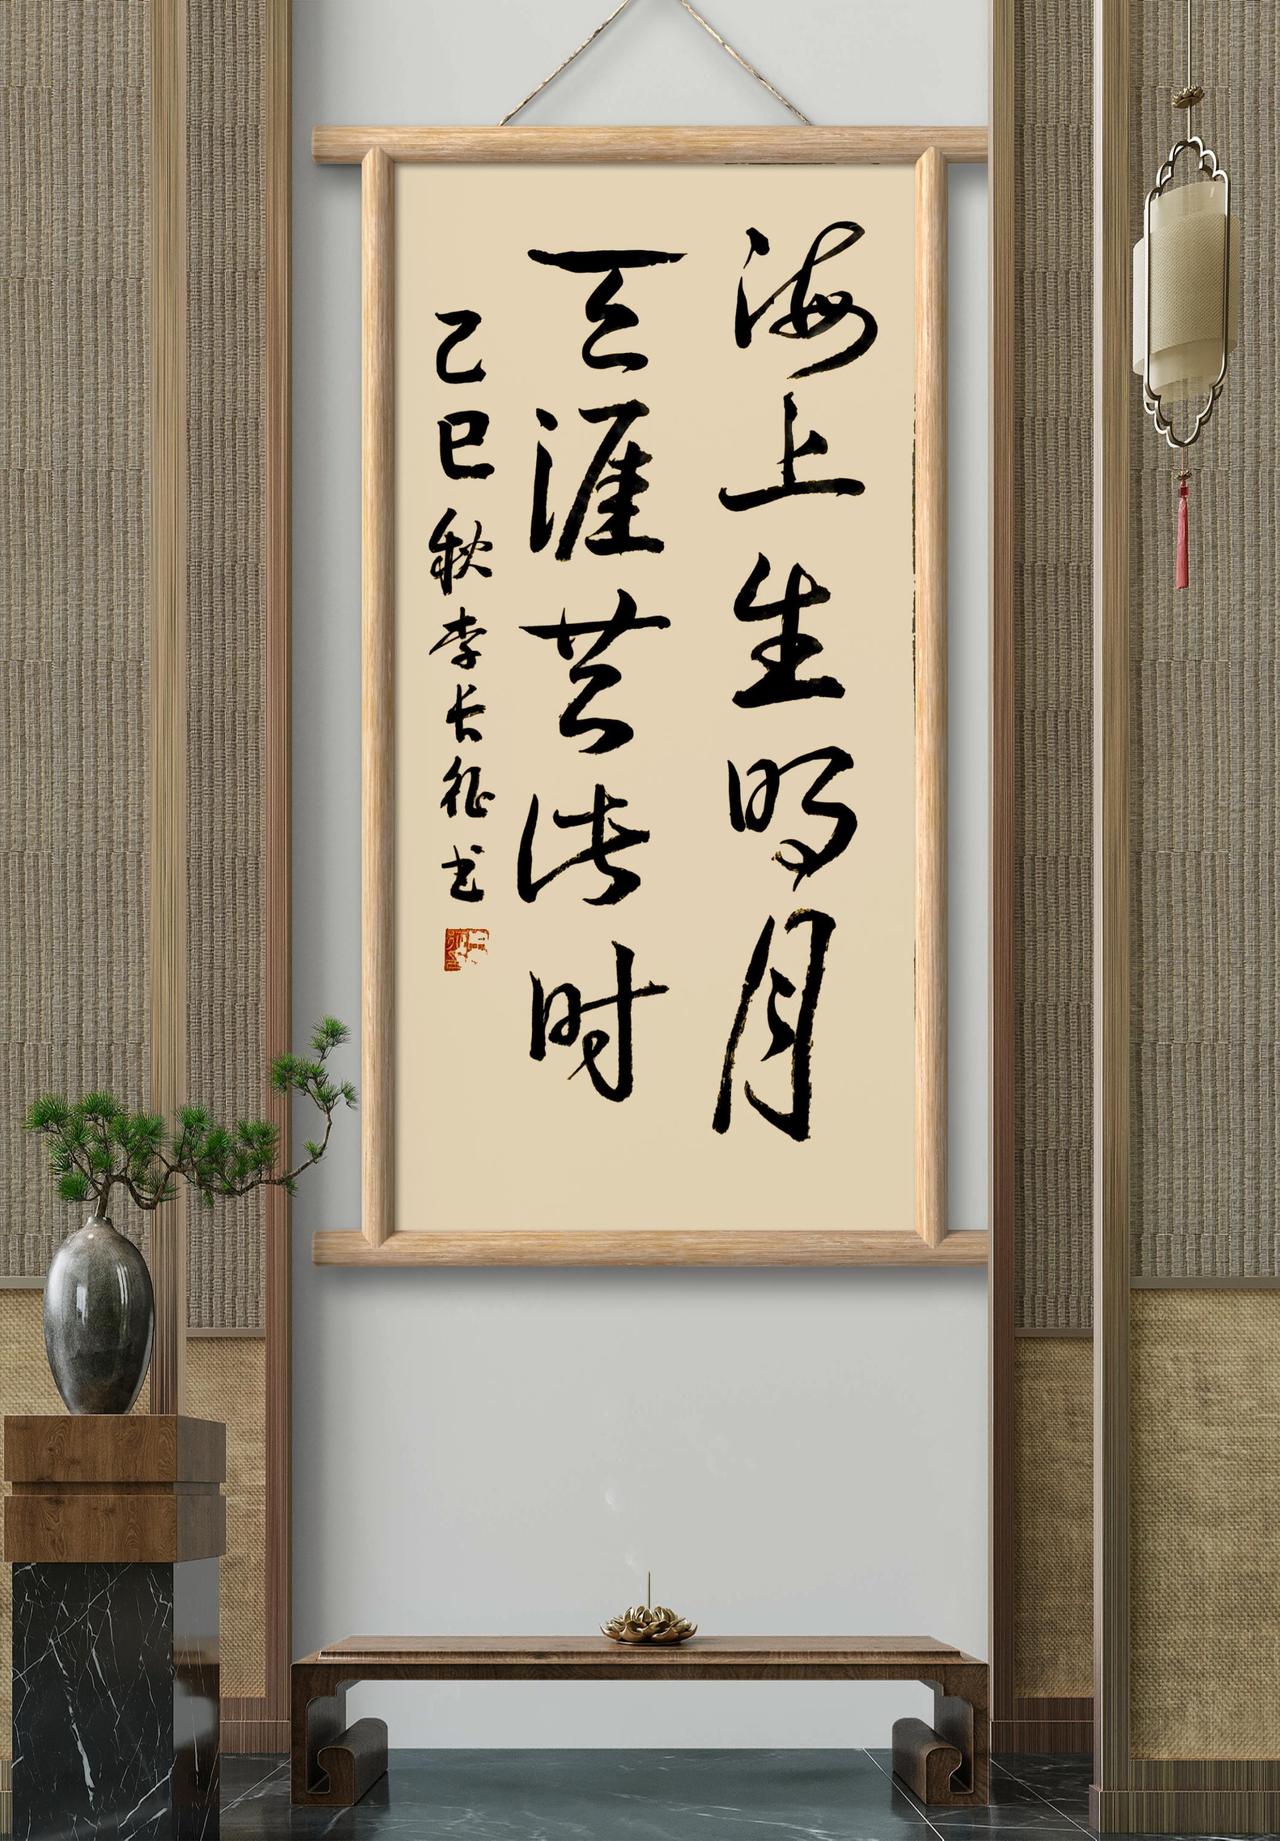 海上生明月
天涯共此时
乙巳秋李长征书